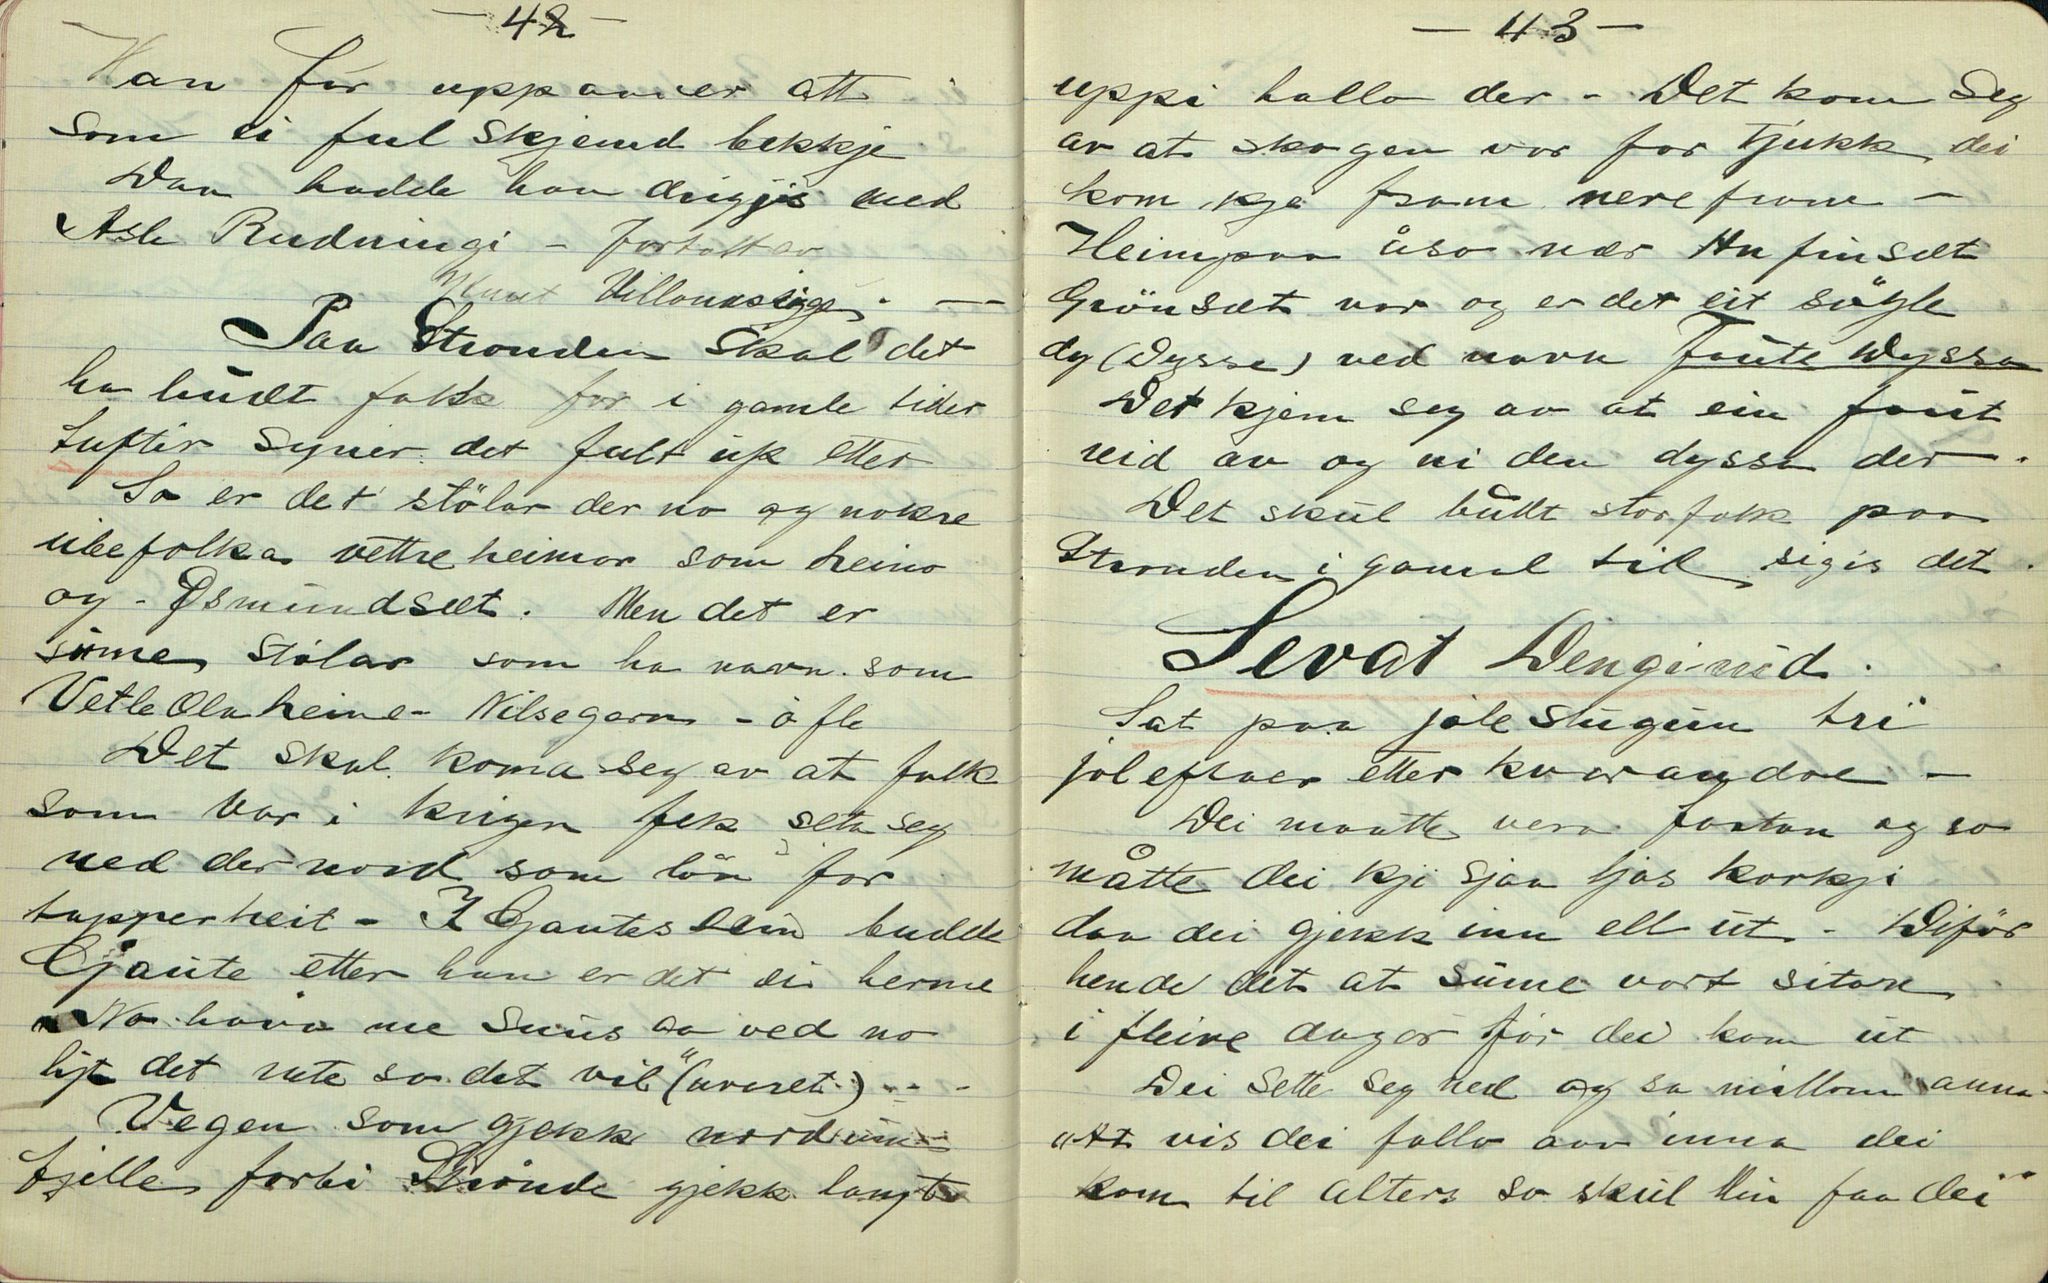 - 42 -
Han för uppanner att
som ei ful skjemd bekkje
Daa hadde han drigjis med
Asle Rudningi - fortalt av
Villandsiggja . -
Paa Stronden skal det
ha budt folk för i gamle tider
tuftir syner det fult up etter
So er det stölar der no og nokre
ubefolka vettre heimar som heino
og - Osmundset. Men det er
sume stölar som ha navn som
Vetle Ola heime - Nilsegarn - o fle
Det skal koma seg av at folk
som var i krigen fek seta seg
ned der nord som lön for
tapperheit - I Gjautes budde
Gjaute etter han er det ei herme
"No hava me snus aa ved no
ljt det ute so det vil" (uveret) - - -
Vegen som gjekk nordum
fjelle forbi Stronde gjekk langt
- 43 -
uppi halla der - Det kom seg
av at skogen var for tjukk dei
kom kje fram nere fram -
Heimpaa åso nær Anfinset
Grönset var og er det eit söyle
dy (dysse) ved navn Faute dyssa
Det kjem seg av at ein faut
reid av og ni den dyssa der .
Det skul budt storfolk paa
Stronden i gamal tid sigis det .
Sevat Dengerud .
Sat paa jole stugun tri
jol eftaer etter kvarandre -
Dei maatte vera fastan og so
måtte dei kji sjaa ljos korkji
daa dei gjekk inn ell ut - Diför
hende det at sume vart sitare
i fleire dagar för dei kom ut
Dei sette seg ned og sa millom anna
"At vis dei falla av inna dei
kom til alters so skul Hin faa dei"